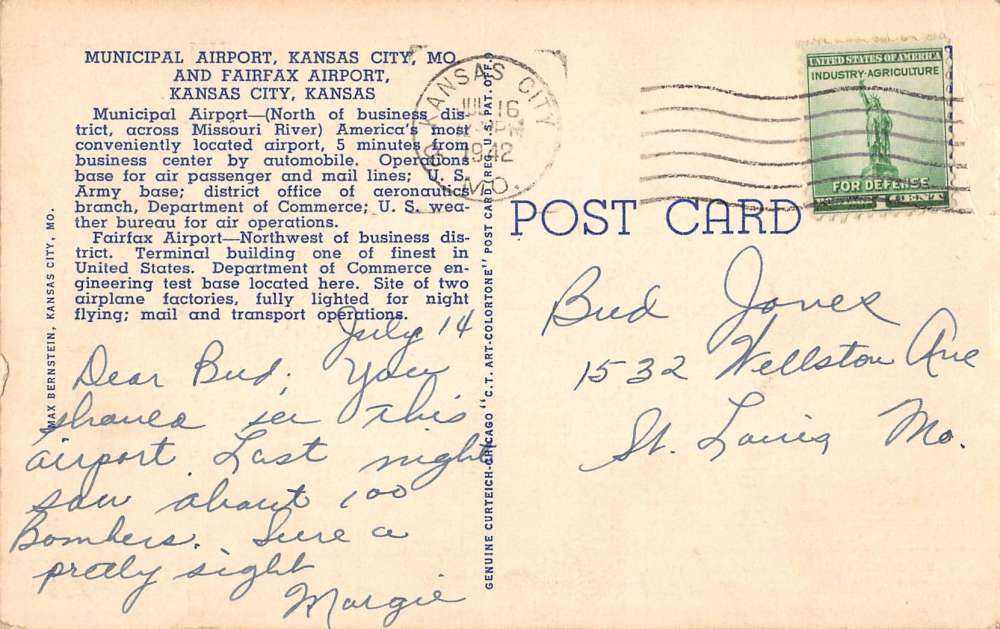 MUNICIPAL AIRPORT, KANSAS CITY, MO.
AND FAIRFAX AIRPORT,
KANSAS CITY, KANSAS
Municipal Airport—(North of business dis-
trict, across Missouri River) America's most
conveniently located airport, 5 minutes from
business center by automobile. Operations
base for air passenger and mail lines; U. S.
Army base; district office of aeronautics
branch, Department of Commerce; U. S. wea-
ther bureau for air operations.
Fairfax Airport—Northwest of business dis-
trict. Terminal building one of finest in
United States. Department of Commerce en-
gineering test base located here. Site of two
airplane factories, fully lighted for night
flying; mail and transport operations.
July 14
Dear Bud, You
should see this
airport. Last night
saw about 100
Bombers. Sure a
pretty sight
Margie
MAX BERNSTEIN, KANSAS CITY, MO.
GENUINE CURTEICH-CHICAGO "C.T. ART-COLORTONE" POST CARD (REG. U.S. PAT. OFF.)
KANSAS CITY
JUL 16
PM
1942
MO.
UNITED STATES OF AMERICA
INDUSTRY·AGRICULTURE
FOR DEFENSE
1 CENT
POST CARD
Bud Jones
1532 Wellston Ave
St. Louis Mo.